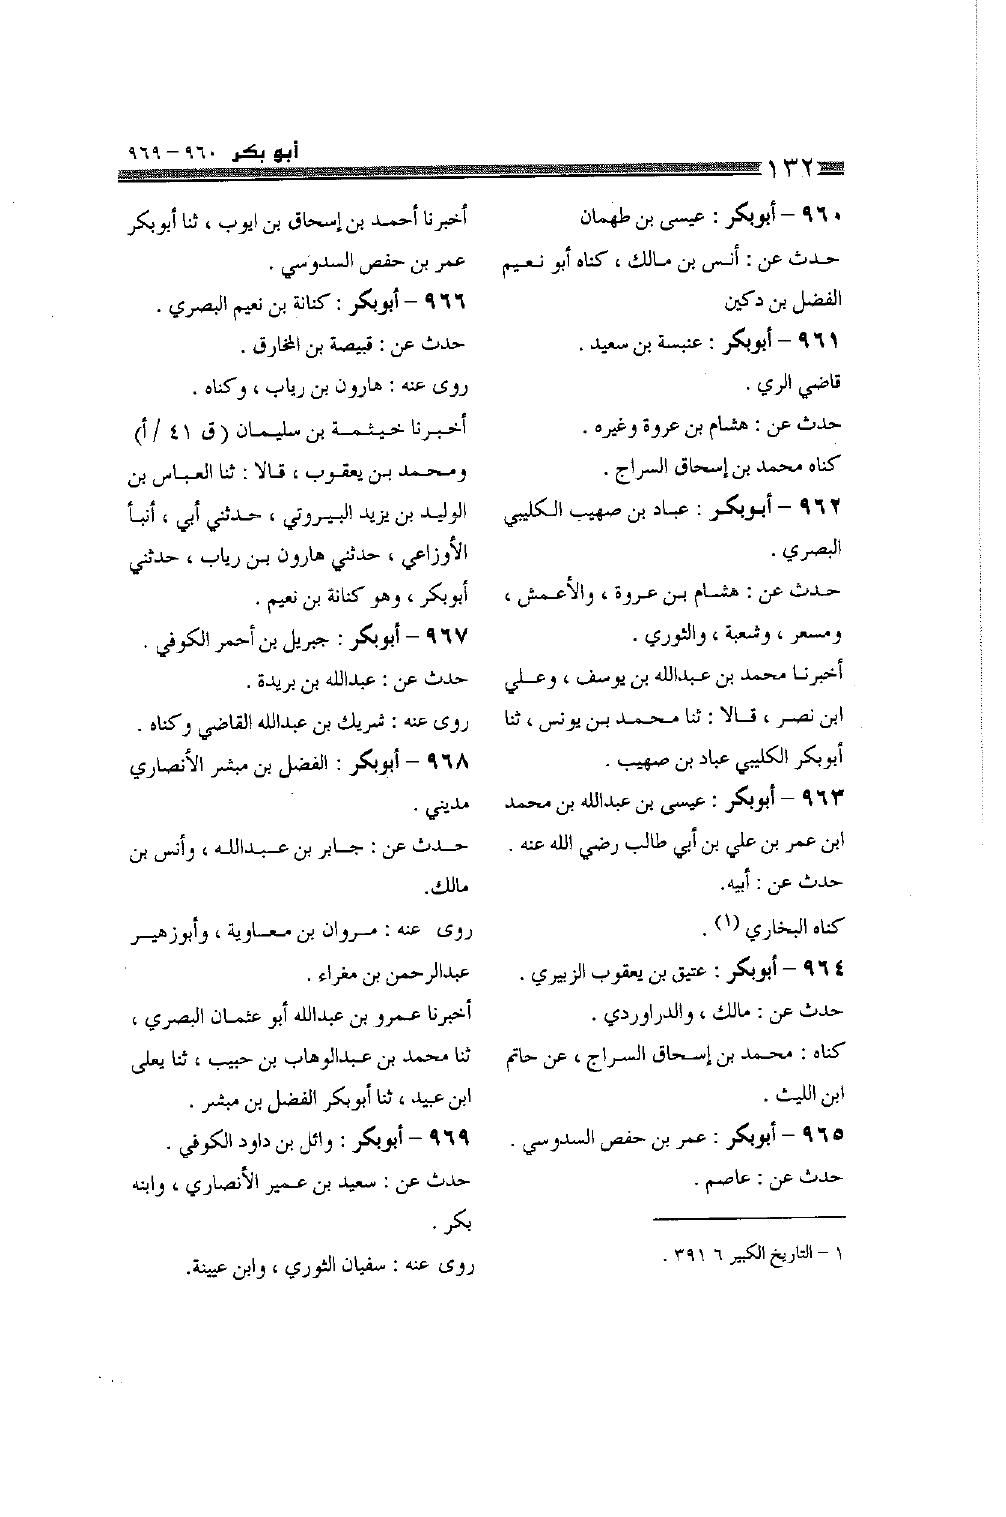 أبو بكر ٩٦٠ – ٩٦٩
١٣٢
٩٦٠ – أبوبكر : عيسى بن طهمان
حدث عن : أنس بن مالك ، كناه أبو نعيم
الفضل بن دكين
٩٦١ – أبوبكر : عنبسة بن سعيد .
قاضي الري .
حدث عن : هشام بن عروة وغيره .
كناه محمد بن إسحاق السراج .
٩٦٢ – أبوبكر : عباد بن صهيب الكليبي
البصري .
حدث عن : هشام بن عروة ، والأعمش ،
ومسعر ، وشعبة ، والثوري .
أخبرنا محمد بن عبدالله بن يوسف ، وعلي
ابن نصر ، قالا : ثنا محمد بن يونس ، ثنا
أبوبكر الكليبي عباد بن صهيب .
٩٦٣ – أبوبكر : عيسى بن عبدالله بن محمد
ابن عمر بن علي بن أبي طالب رضي الله عنه .
حدث عن : أبيه.
كناه البخاري (١) .
٩٦٤ – أبوبكر : عتيق بن يعقوب الزبيري .
حدث عن : مالك ، والدراوردي .
كناه : محمد بن إسحاق السراج ، عن حاتم
ابن الليث .
٩٦٥ – أبوبكر : عمر بن حفص السدوسي .
حدث عن : عاصم .
١ – التاريخ الكبير ٦ ٣٩١ .
أخبرنا أحمد بن إسحاق بن ايوب ، ثنا أبوبكر
عمر بن حفص السدوسي .
٩٦٦ – أبوبكر : كنانة بن نعيم البصري .
حدث عن : قبيصة بن المخارق .
روى عنه : هارون بن رياب ، وكناه .
أخبرنا خيثمة بن سليمان (ق ٤١ /أ)
ومحمد بن يعقوب ، قالا : ثنا العباس بن
الوليد بن يزيد البيروتي ، حدثني أبي ، أنبأ
الأوزاعي ، حدثني هارون بن رياب ، حدثني
أبوبكر ، وهو كنانة بن نعيم .
٩٦٧ – أبوبكر : جبريل بن أحمر الكوفي .
حدث عن : عبدالله بن بريدة .
روى عنه : شريك بن عبدالله القاضي وكناه .
٩٦٨ – أبوبكر : الفضل بن مبشر الأنصاري
مديني .
حدث عن : جابر بن عبدالله ، وأنس بن
مالك.
روى عنه : مروان بن معاوية ، وأبوزهير
عبدالرحمن بن مغراء .
أخبرنا عمرو بن عبدالله أبو عثمان البصري ،
ثنا محمد بن عبدالوهاب بن حبيب ، ثنا يعلى
ابن عبيد ، ثنا أبوبكر الفضل بن مبشر .
٩٦٩ – أبوبكر : وائل بن داود الكوفي .
حدث عن : سعيد بن عمير الأنصاري ، وابنه
بكر .
روى عنه : سفيان الثوري ، وابن عيينة.